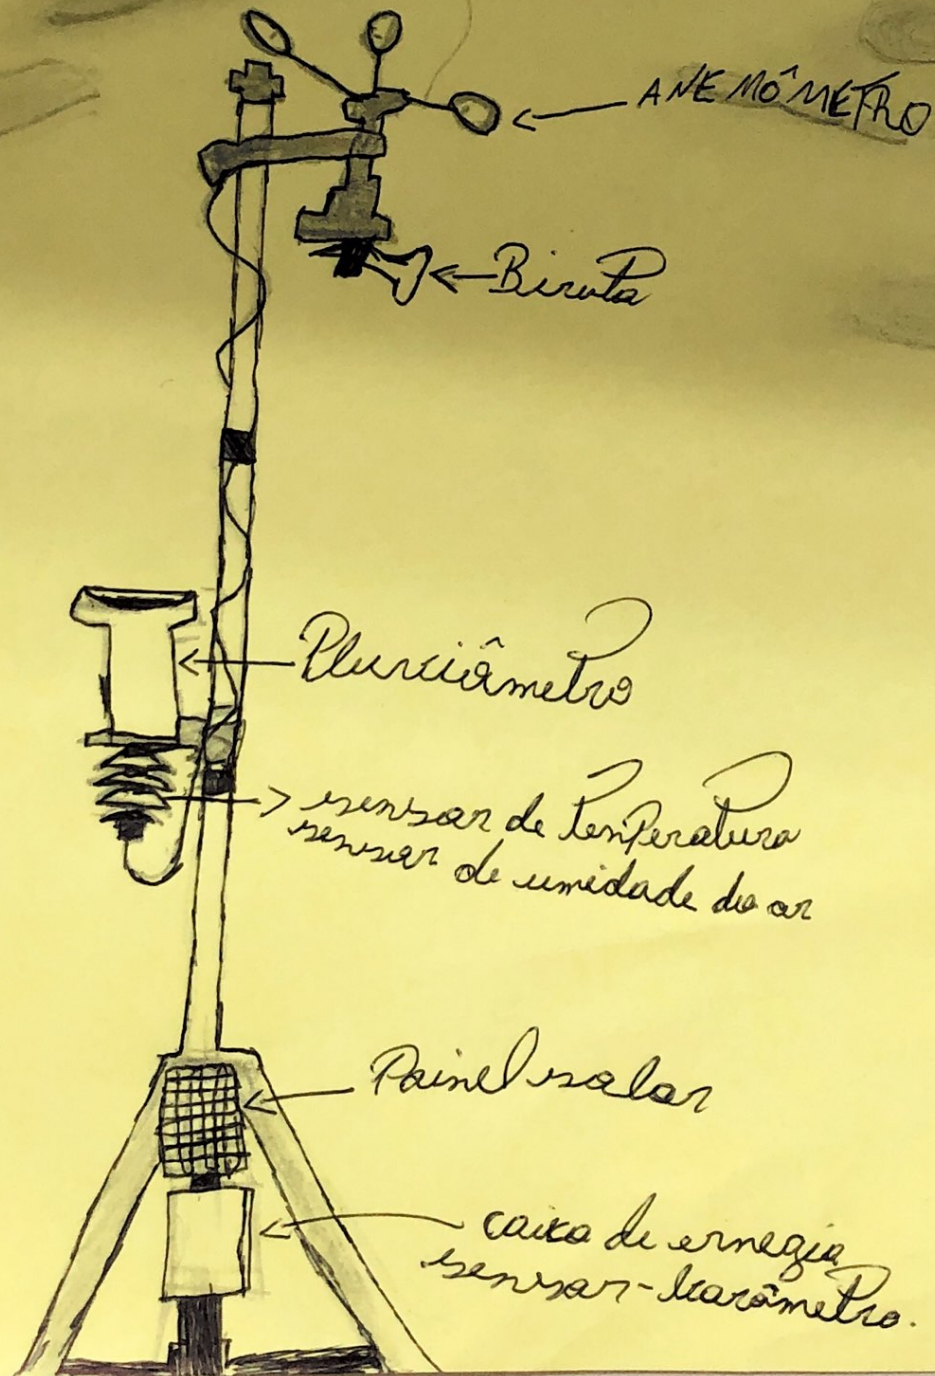 ANEMÔMETRO
Biruta
Pluviâmetro
sensor de temPeratura
sensor de umidade do ar
Painel solar
caixa de ernegia
sensor-barômetro.